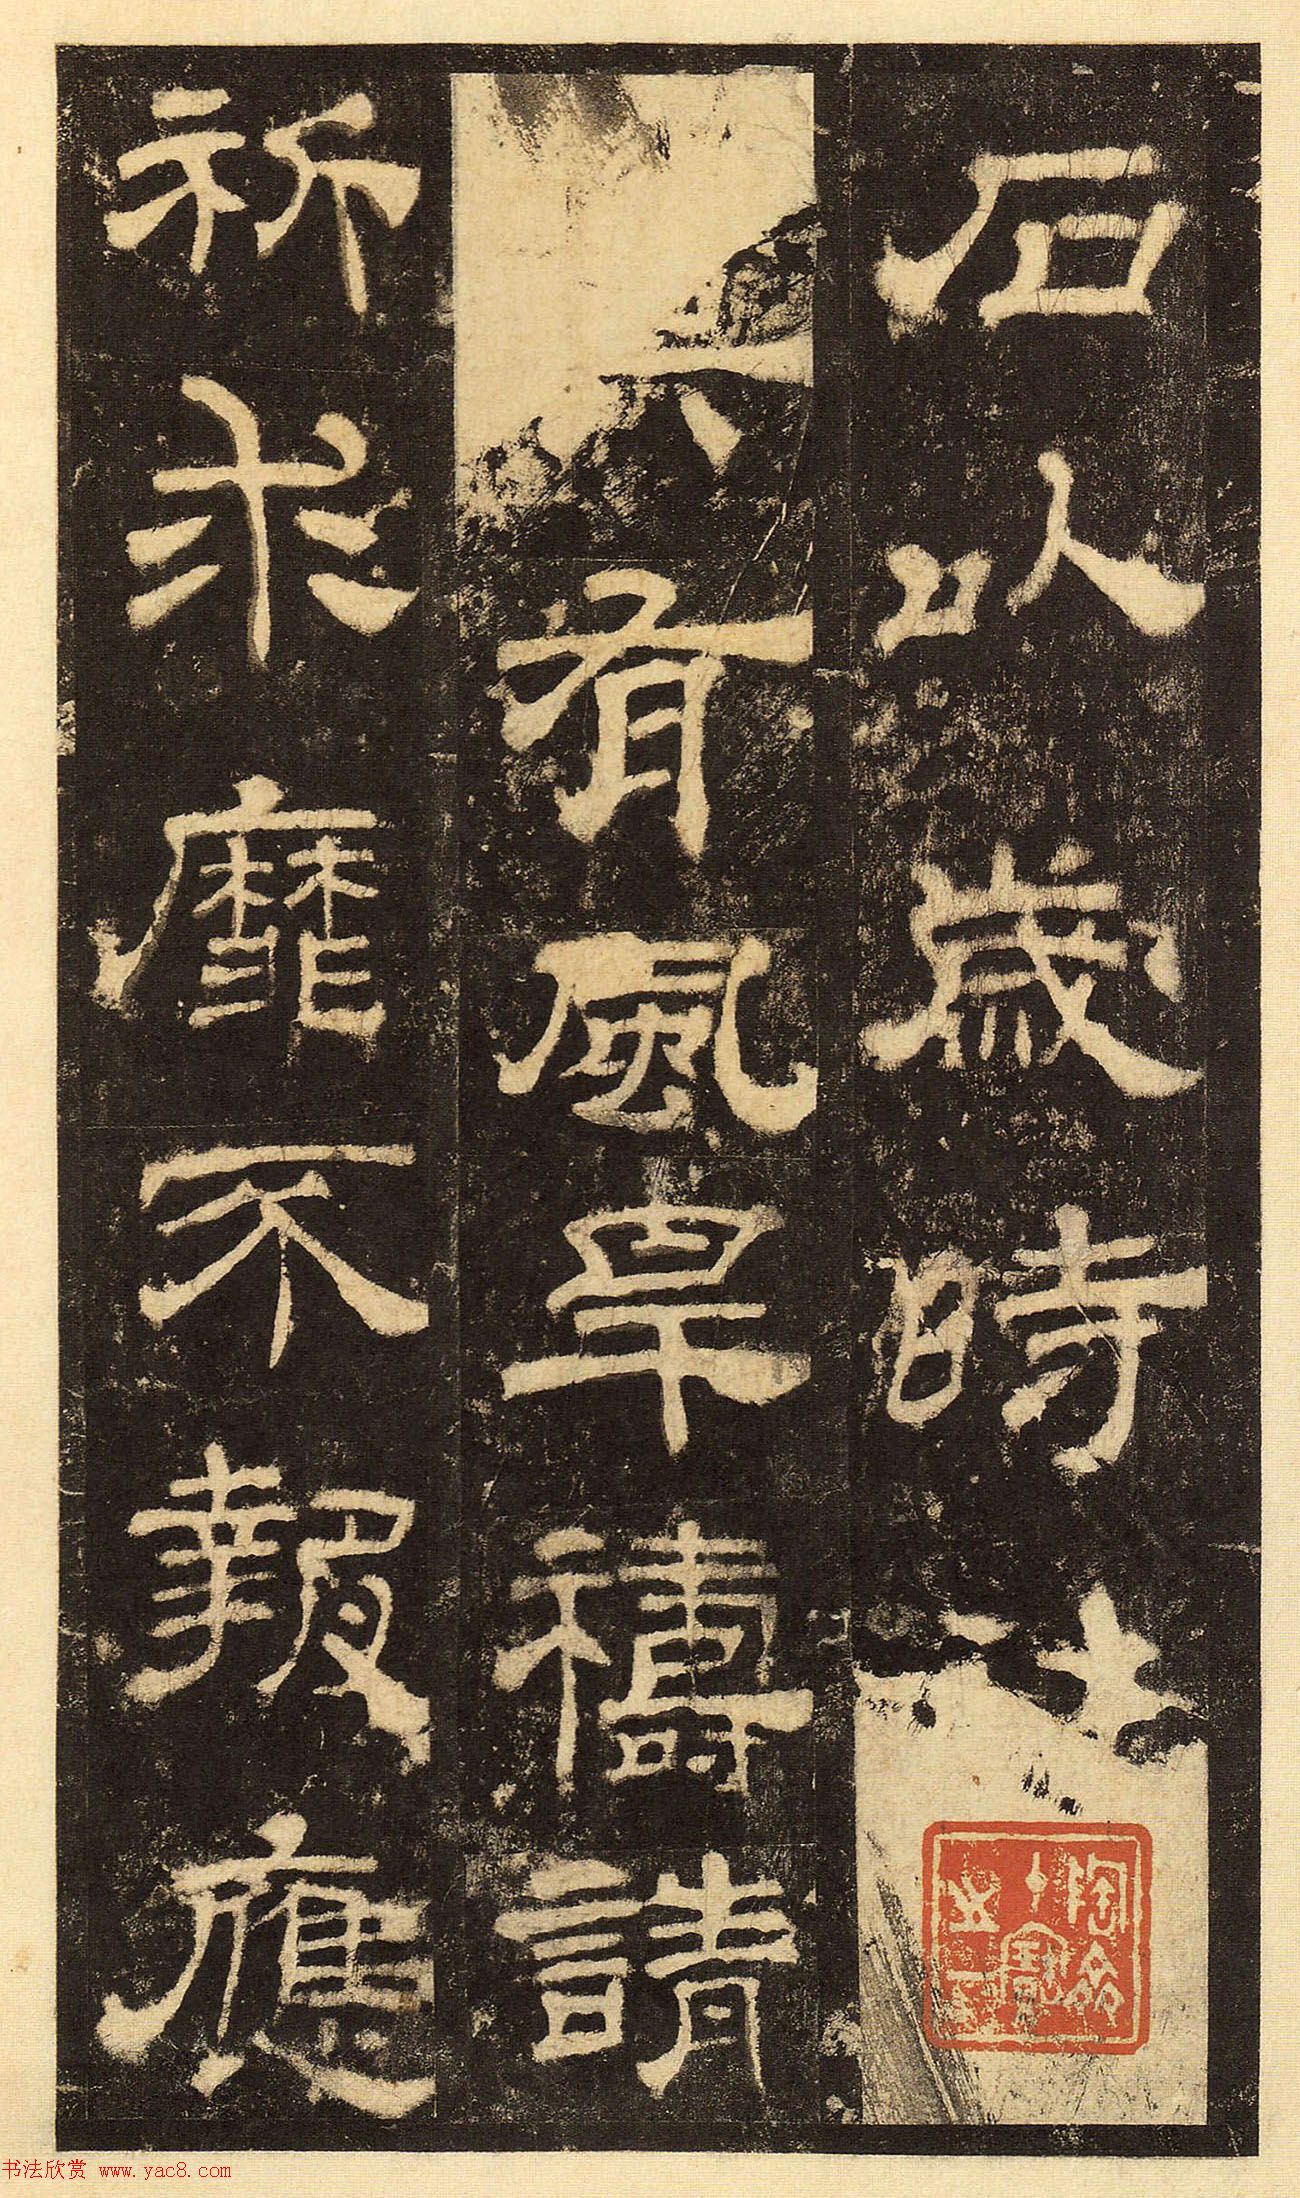 石以歲時
有風旱禱請
祈求靡不報應
书法欣赏 www.yac8.com